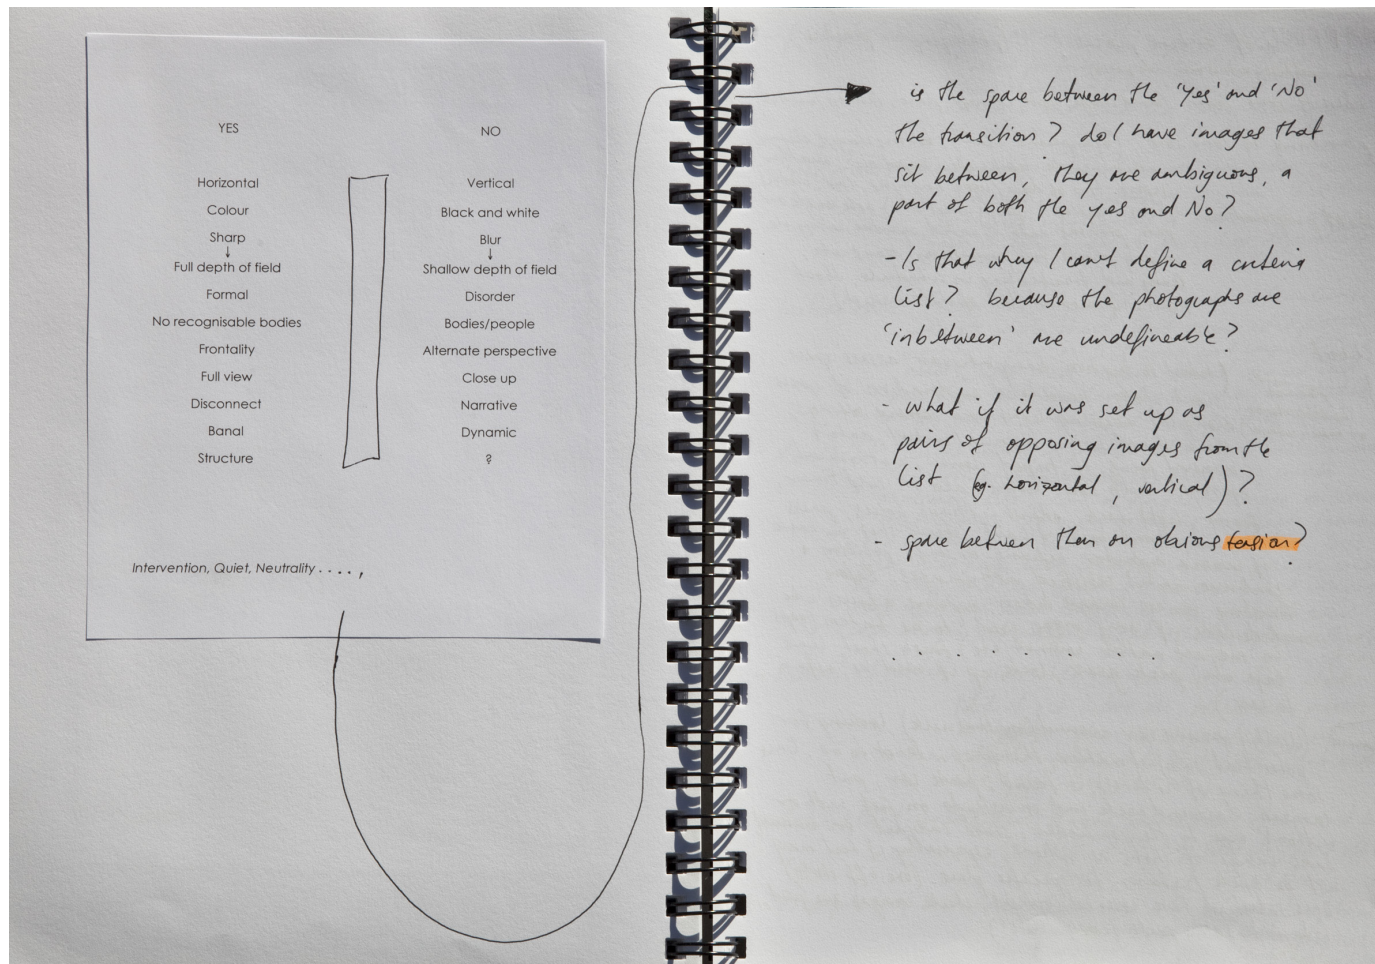 YES
Horizontal
Colour
Sharp
↓
Full depth of field
Formal
No recognisable bodies
Frontality
Full view
Disconnect
Banal
Structure
NO
Vertical
Black and white
Blur
↓
Shallow depth of field
Disorder
Bodies/people
Alternate perspective
Close up
Narrative
Dynamic
?
Intervention, Quiet, Neutrality . . . . ,
is the space between the 'Yes' and 'No'
the transition? do I have images that
sit between, they are ambiguous, a
part of both the yes and No?
- Is that why I can't define a criteria
list? because the photographs are
'inbetween' are undefineable?
- what if it was set up as
pairs of opposing images from the
list (eg. horizontal, vertical)?
- space between then an obvious tension?
. . . . . . .